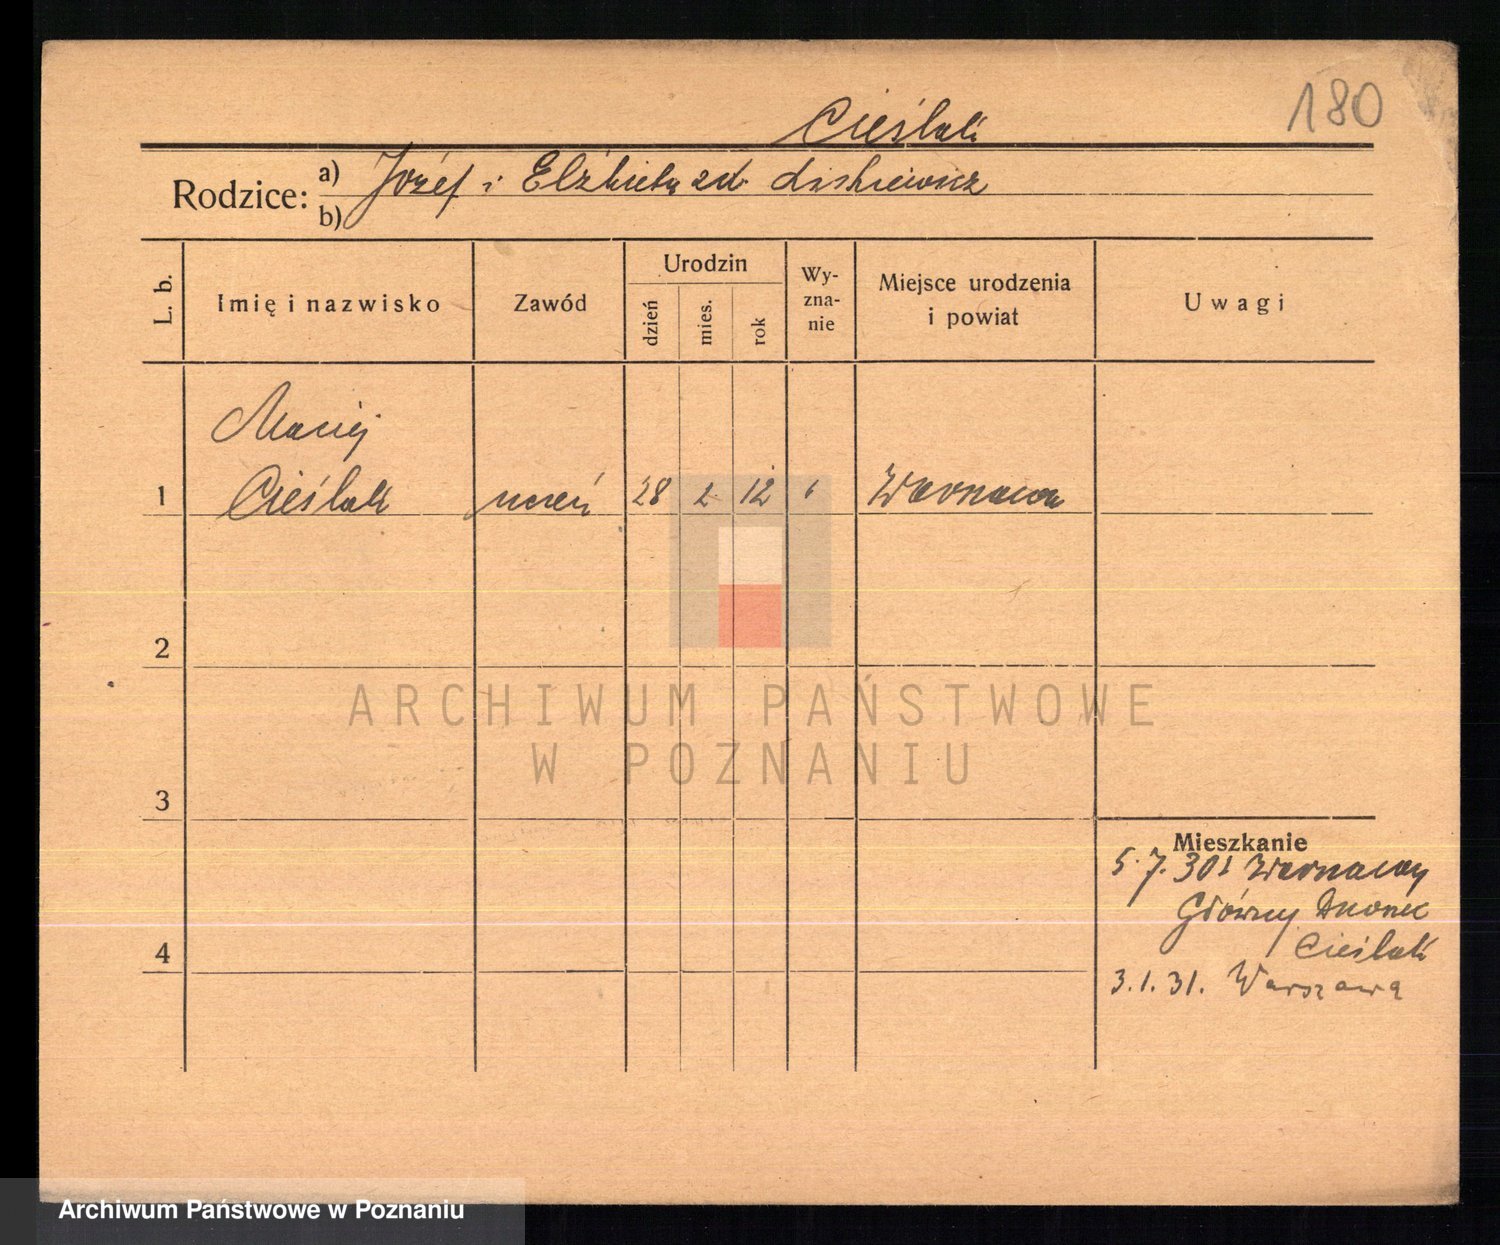 180
Cieślak
Rodzice: a) Józef i Elżbieta zd.
b)
L. b.
Imię i nazwisko
Zawód
Urodzin
dzień
mies.
rok
Wy-
zna-
nie
Miejsce urodzenia
i powiat
Uwagi
Maciej
1 Cieślak uczeń 28 2 12 Warszawa
2
ARCHIWUM PAŃSTWOWE
W POZNANIU
3
Mieszkanie
5.7.30 Warszawy
Główny Dworzec
Cieślak
4
3.1.31. Warszawa
Archiwum Państwowe w Poznaniu